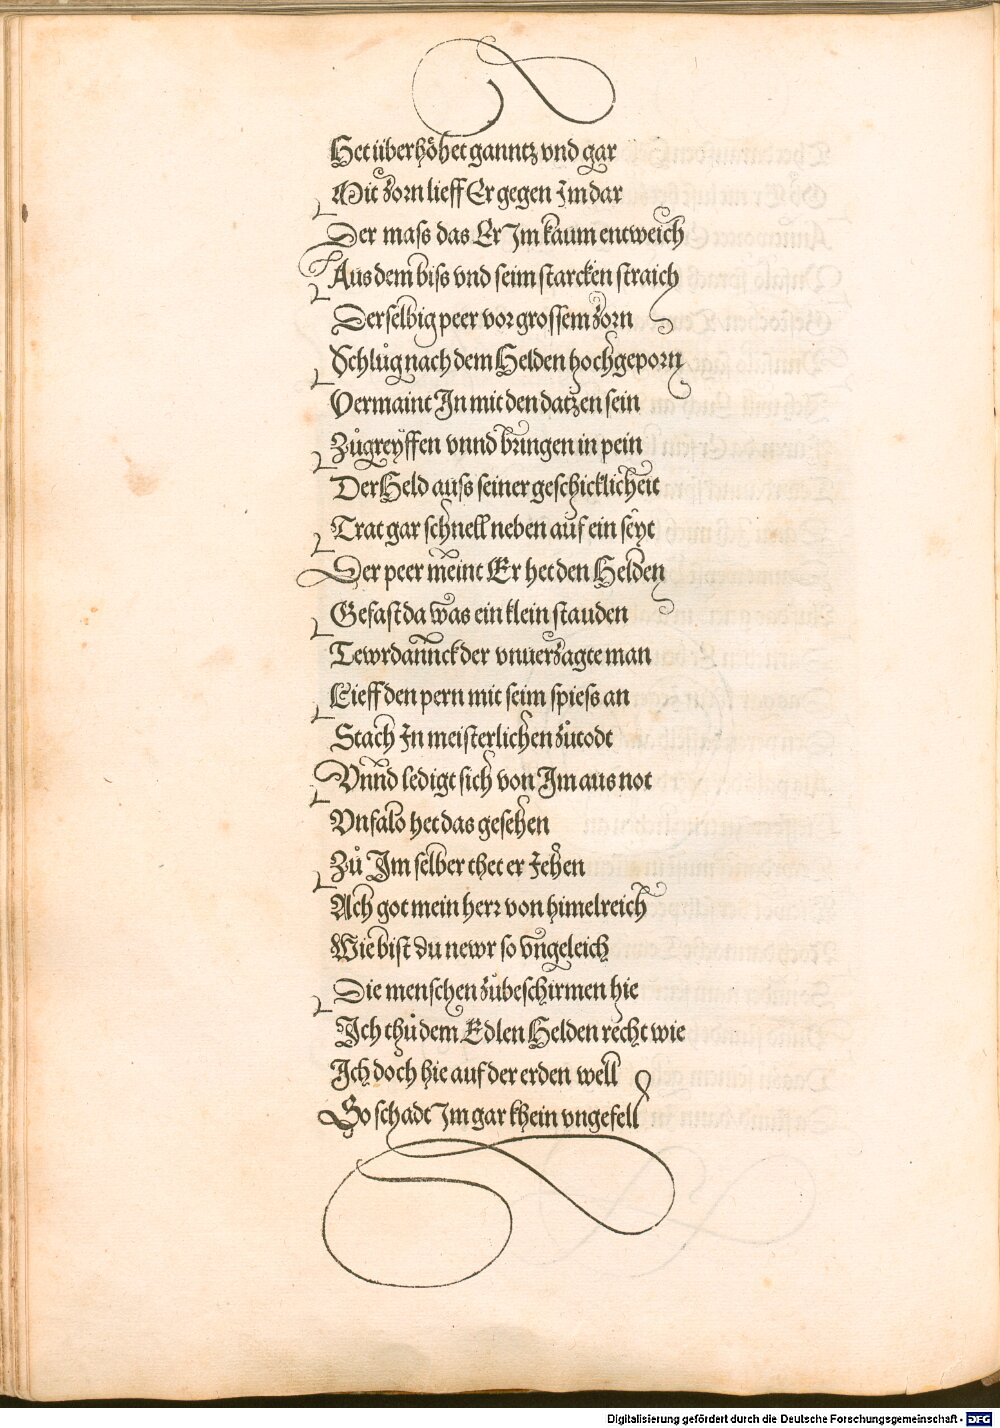 Het überhöhet ganntz vnd gar
Mit zorn lieff Er gegen Im dar
Der mass das Er Im kaum entweich
Aus dem biss vnd seim starcken straich
Derselbig peer vor grossem zorn
Schlůg nach dem Helden hochgeporn
Vermaint In mit den datzen sein
Zůgreyffen vnnd bringen in pein
Der Held auss seiner geschicklicheit
Trat gar schnell neben auf ein seyt
Der peer meint Er het den Helden
Gefast da was ein klein stauden
Tewrdannck der vnuerzagte man
Lieff den pern mit seim spiess an
Stach In meisterlichen zůtodt
Vnnd ledigt sich von Im aus not
Vnfalo het das gesehen
Zů Im selber thet er Jehen
Ach got mein herr von himelreich
Wie bist du newr so vngeleich
Die menschen zůbeschirmen hie
Ich thů dem Edlen Helden recht wie
Ich doch hie auf der erden well
So schadt Im gar khein vngefell
Digitalisierung gefördert durch die Deutsche Forschungsgemeinschaft - DFG